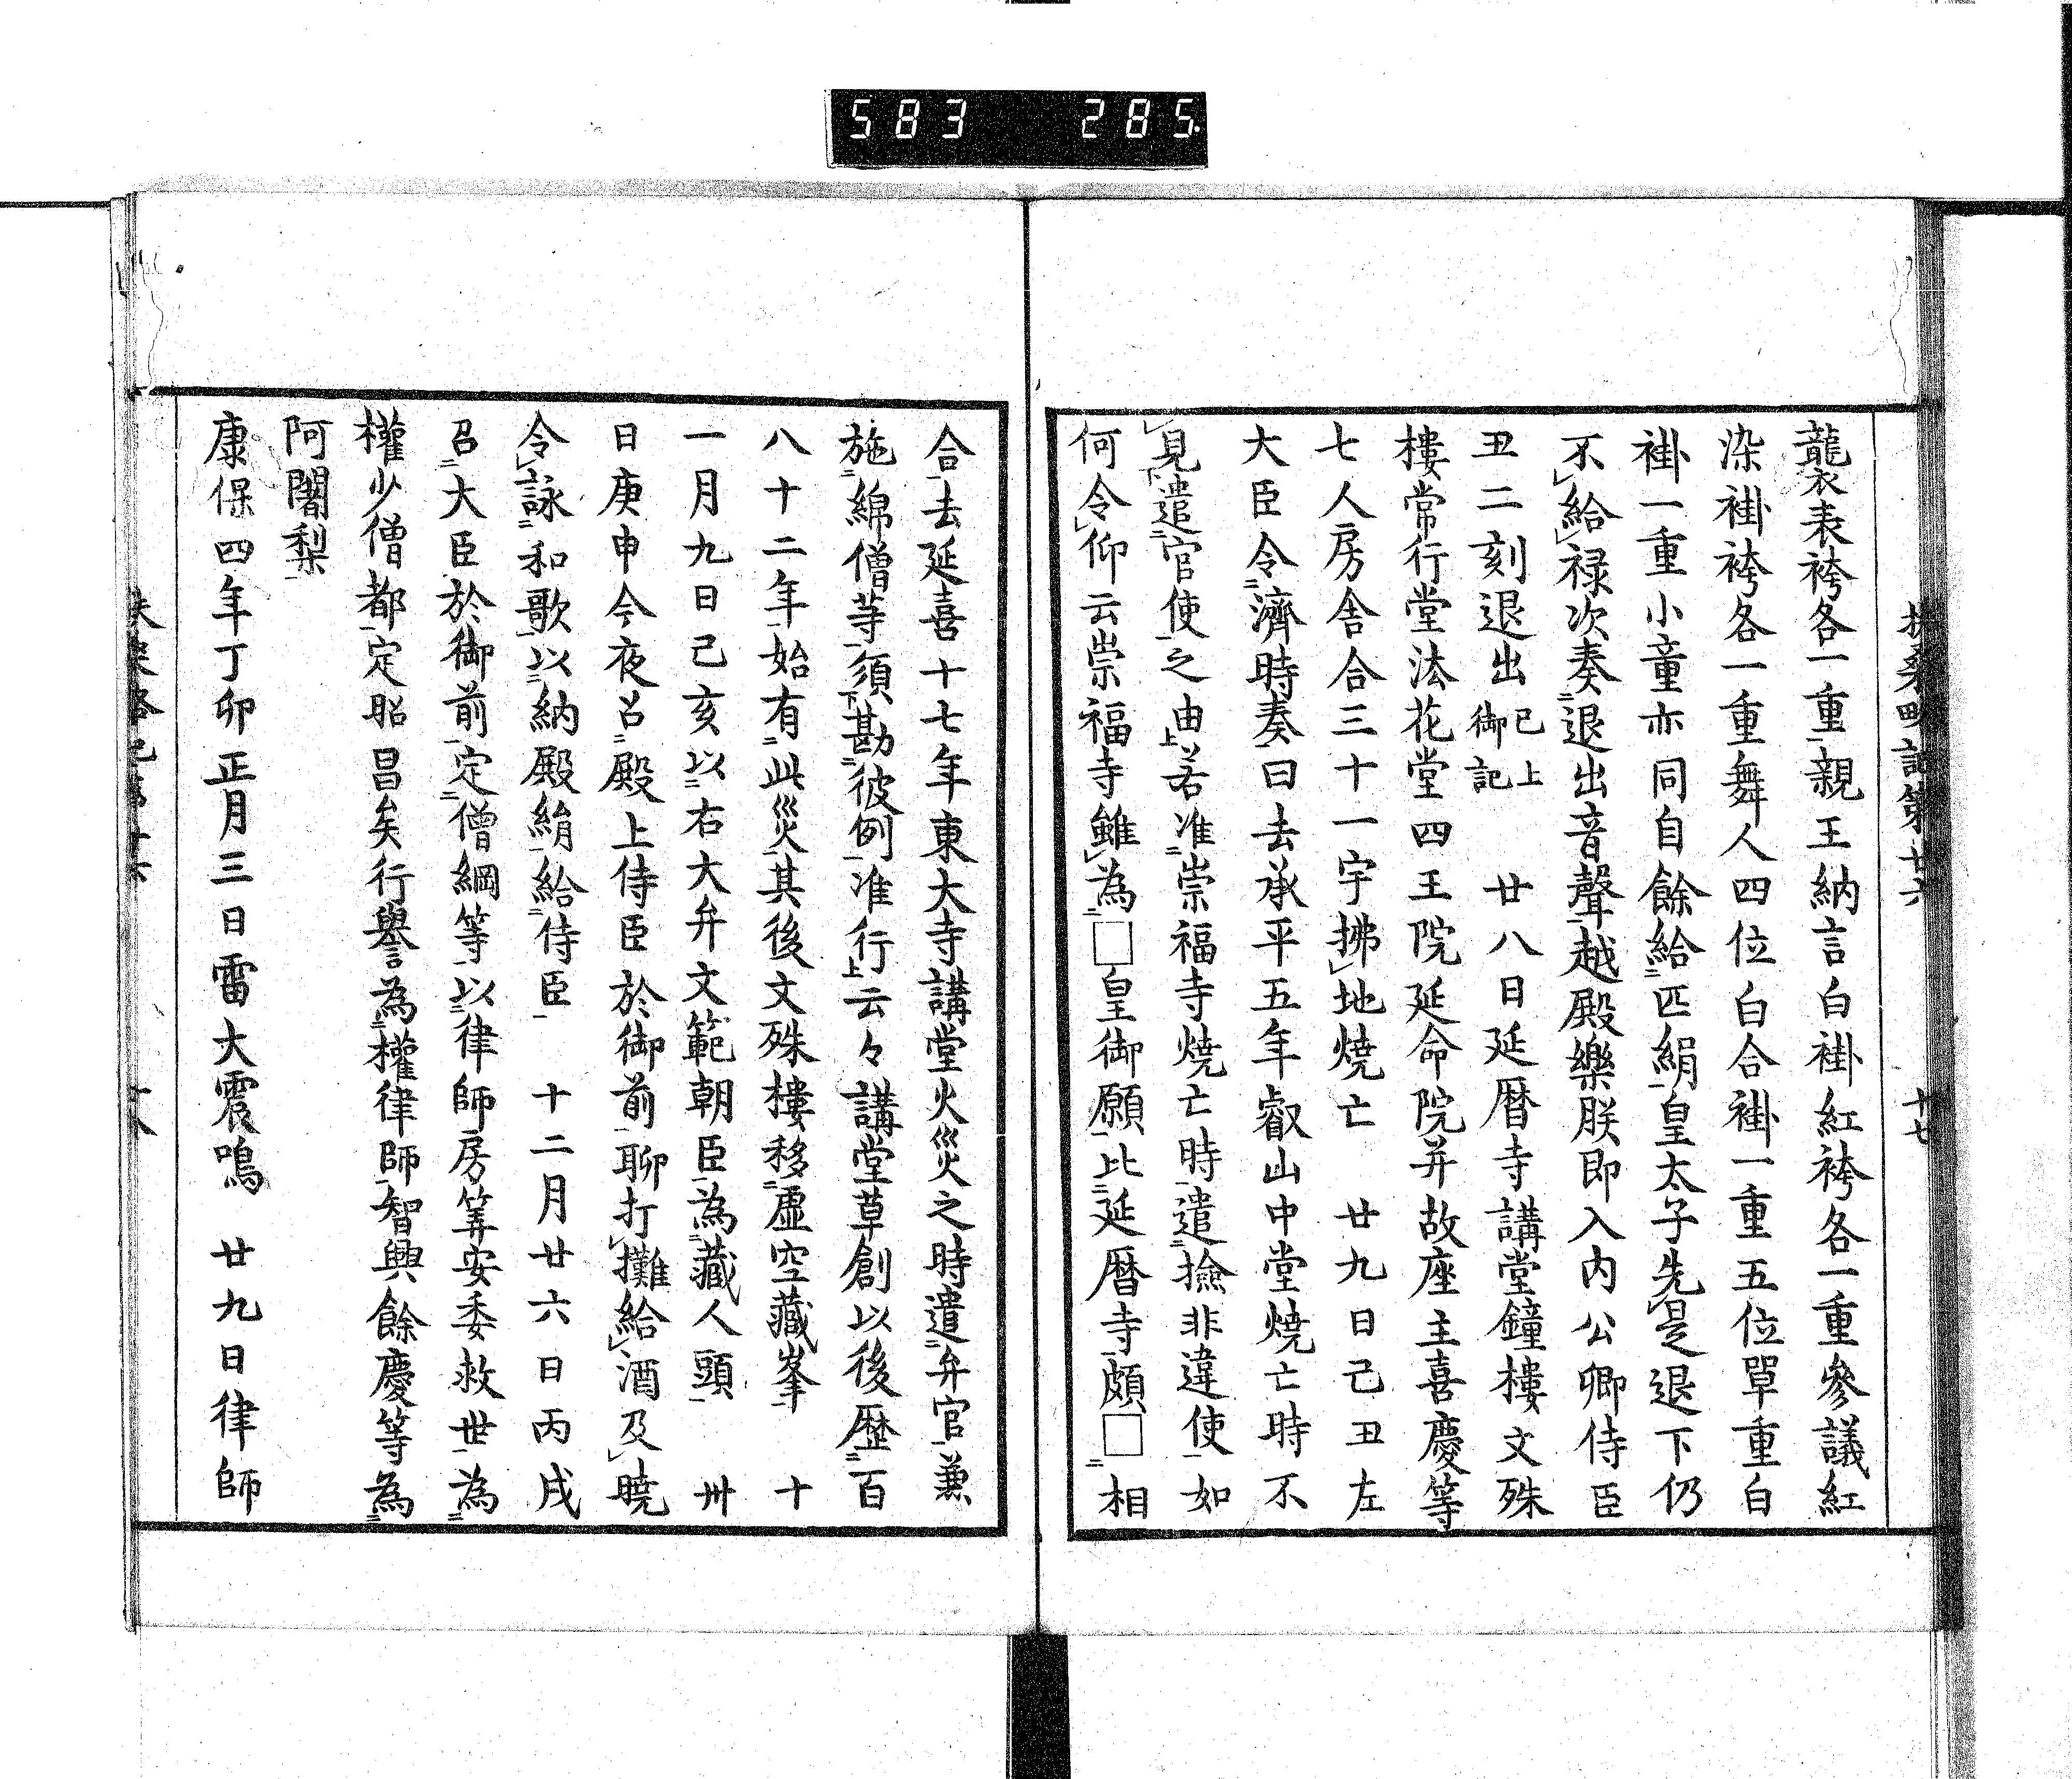 583 285
扶桑略記第廿六 十七
襲衣表袴各一重親王納言白褂紅袴各一重參議紅
染褂袴各一重舞人四位白合褂一重五位單重白
褂一重小童亦同自餘給匹絹皇太子先是退下仍
不給禄次奏退出音聲越殿樂朕即入内公卿侍臣
丑二刻退出已上御記 廿八日延暦寺講堂鐘樓文殊
樓常行堂法花堂四王院延命院并故座主喜慶等
七人房舎合三十一宇拂地燒亡 廿九日己丑左
大臣令濟時奏曰去承平五年叡山中堂燒亡時不
見遣官使之由若准崇福寺燒亡時遣撿非違使如
何令仰云崇福寺雖為□皇御願比延暦寺頗□相
合去延喜十七年東大寺講堂火災之時遣弁官兼
施綿僧等須勘彼例准行云々講堂草創以後歴百
八十二年始有此災其後文殊樓移虚空藏峯 十
一月九日己亥以右大弁文範朝臣為藏人頭 卅
日庚申今夜召殿上侍臣於御前聊打攤給酒及曉
令詠和歌以納殿絹給侍臣 十二月廿六日丙戌
召大臣於御前定僧綱等以律師房筭安委救世為
權少僧都定昭昌矣行譽為權律師智興餘慶等為
阿闍梨
康保四年丁卯正月三日雷大震鳴 廿九日律師
扶桑略記第廿六 十八